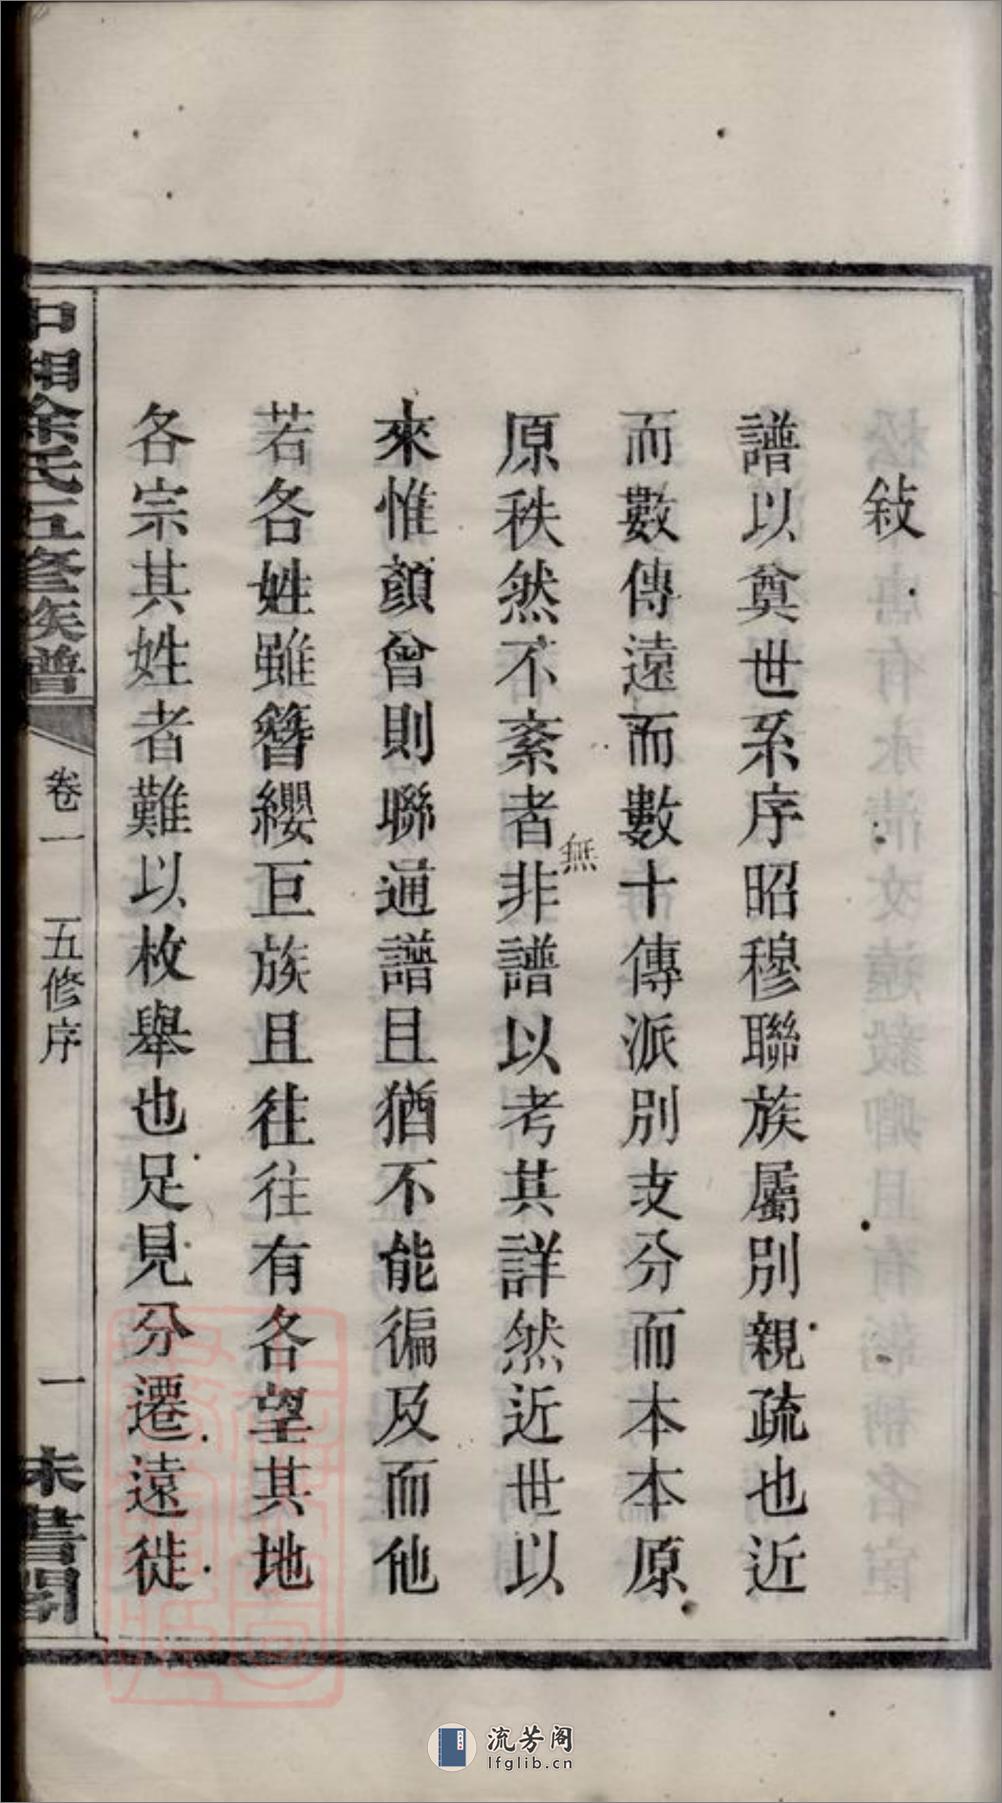 敍
譜以奠世系序昭穆聯族屬別親疏也近
而數傳遠而數十傳派別支分而本本原
原秩然不紊者非譜以考其詳然近世以
無
來惟顏曾則聯通譜且猶不能徧及而他
若各姓雖簪纓巨族且往往有各望其地
各宗其姓者難以枚舉也足見分遷遠徙
中湘徐氏五修族譜
卷一
五修序
一
未書閣
流芳阁
lfglib.cn